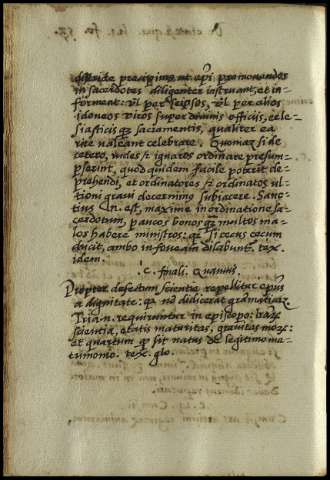 districte precipimus ut epi promovendos
in sacerdotes diligenter instruant, et in-
forment: vl per seipsos, vl per alios
idoneos viros super divinis officiis, eccle-
siasticis qz sacramentis, qualiter ea
rite valeant celebrare. Quoniaz si de
cetero, rudes, et ignaros ordinare presump-
serint, quod quidem facile poterit de-
prehendi, et ordinatores et ordinatos ul-
tioni gravi decernimo subiacere. Sanc-
tius .n. est, maxime in ordinatione sa-
cerdotum, paucos bonos qz multos ma-
los habere ministros: qz si cecus cecum
ducit, ambo in foveam dilabunt. tex.
idem.
.c. finali. Quamvis
Propter defectum scientie repellitur epus
a dignitate: qz no didicerat gramaticaz
Tria .n. requiruntur in episcopo: lraz
scientia, etatis maturitas, gravitas moz:
et quartum qz sit natus de legitimo ma-
trimonio. tex. glo.